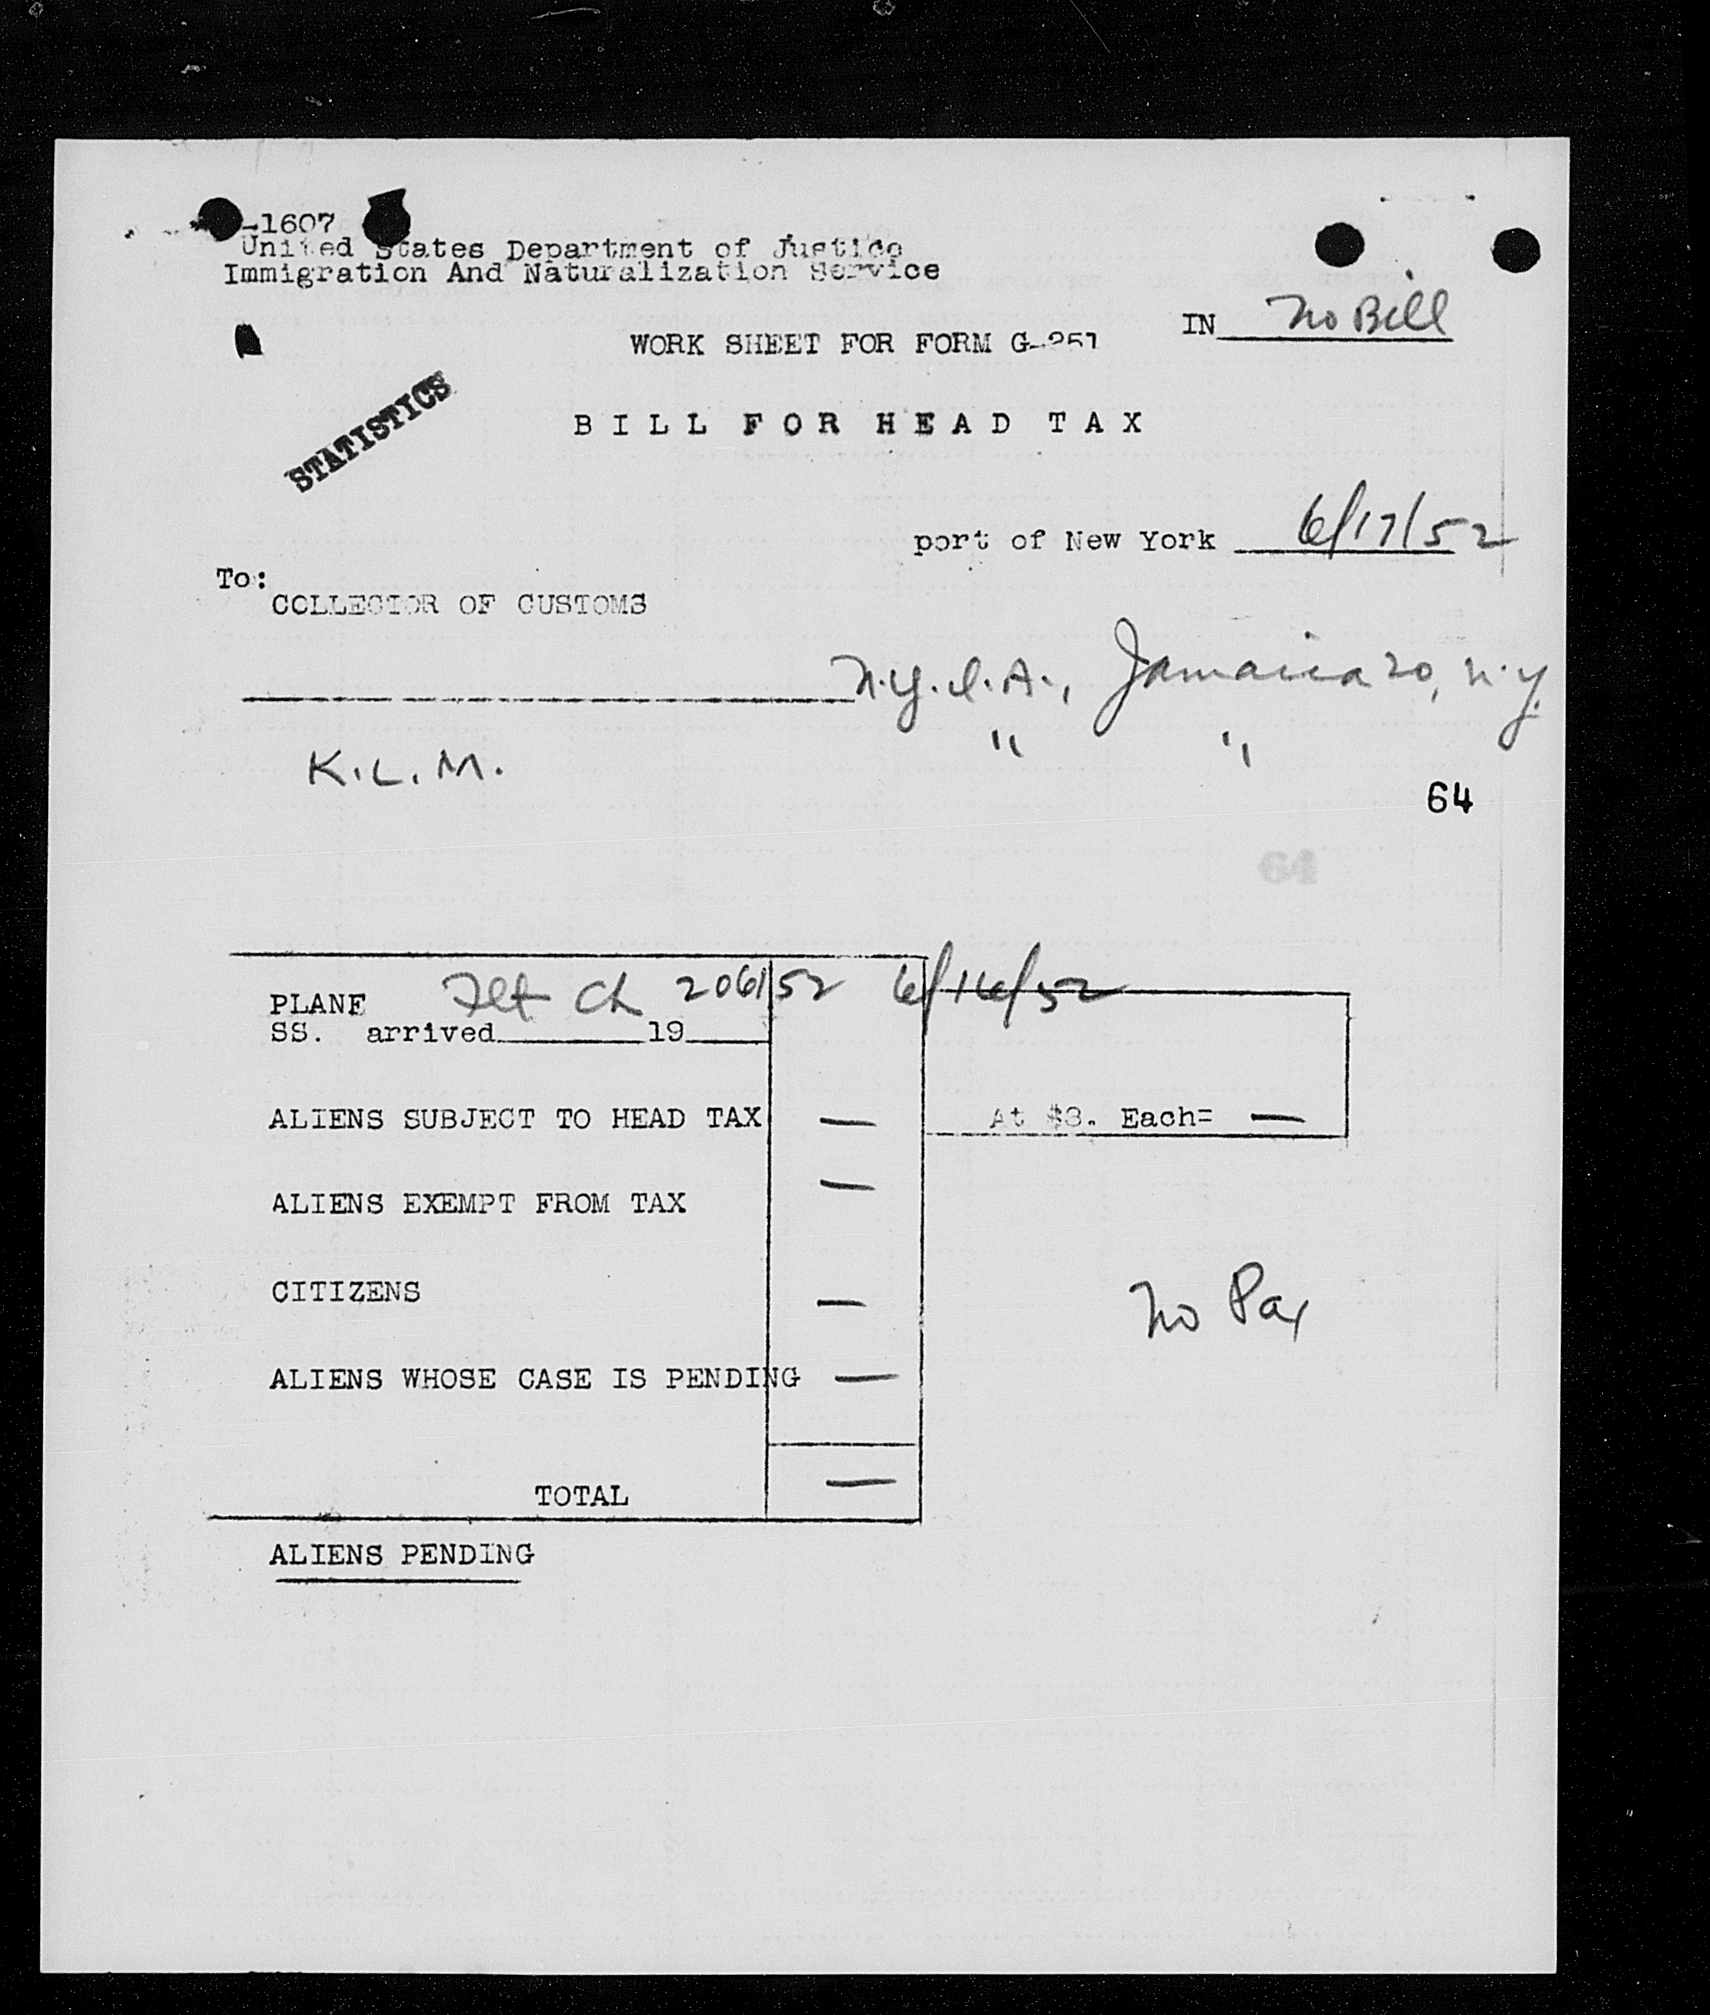 -1607
United States Department of Justice
Immigration And Naturalization Service
IN No Bill
WORK SHEET FOR FORM G-251
STATISTICS
BILL FOR HEAD TAX
port of New York 6/17/52
To:
COLLECTOR OF CUSTOMS
N.Y.I.A., Jamaica 20, N.Y.
K.L.M. " "
64
64
PLANE Flt Ch 206152 6/16/52
SS. arrived 19
ALIENS SUBJECT TO HEAD TAX — At $8. Each= —
ALIENS EXEMPT FROM TAX —
CITIZENS —
No Pax
ALIENS WHOSE CASE IS PENDING —
TOTAL —
ALIENS PENDING